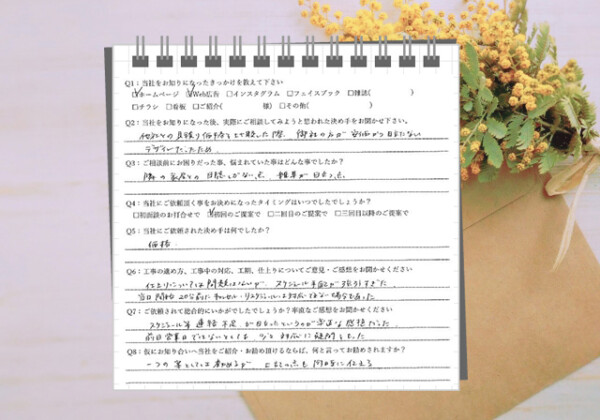 Q1：当社をお知りになったきっかけを教えて下さい
☑ホームページ ☑Web広告 □インスタグラム □フェイスブック □雑誌（ ）
□チラシ □看板 □ご紹介（ 様）□その他（ ）
Q2：当社をお知りになった後、実際にご相談してみようと思われた決め手をお聞かせ下さい。
他社との見積り価格を比較した際、御社の方が安価
デザインだったため
Q3：ご相談前にお困りだった事、悩まれていた事はどんな事でしたか？
隣の家屋との目隠しがない点、雑草が
Q4：当社にご依頼頂く事をお決めになったタイミングはいつでしたでしょうか？
□初面談のお打合せで ☑初回のご提案で □二回目のご提案で □三回目以降のご提案で
Q5：当社に依頼された決め手は何でしたか？
価格
Q6：工事の進め方、工事中の対応、工期、仕上りについてご意見・ご感想をお聞かせください
仕上りについては問題はないが、スケジュール
当日 開始 20分前に キャンセル・リスケジュールは対応できない場合もあった
Q7：ご依頼されて総合的にいかがでしたでしょうか？率直なご感想をお聞かせください
スケジュール等 連絡不足 が というのが率直な感想だった。
前日 営業日
Q8：仮にお知り合いへ当社をご紹介・お勧め頂けるならば、何と言ってお勧めされますか？
一つの案としては勧めるが 上記の点も 同時に伝える